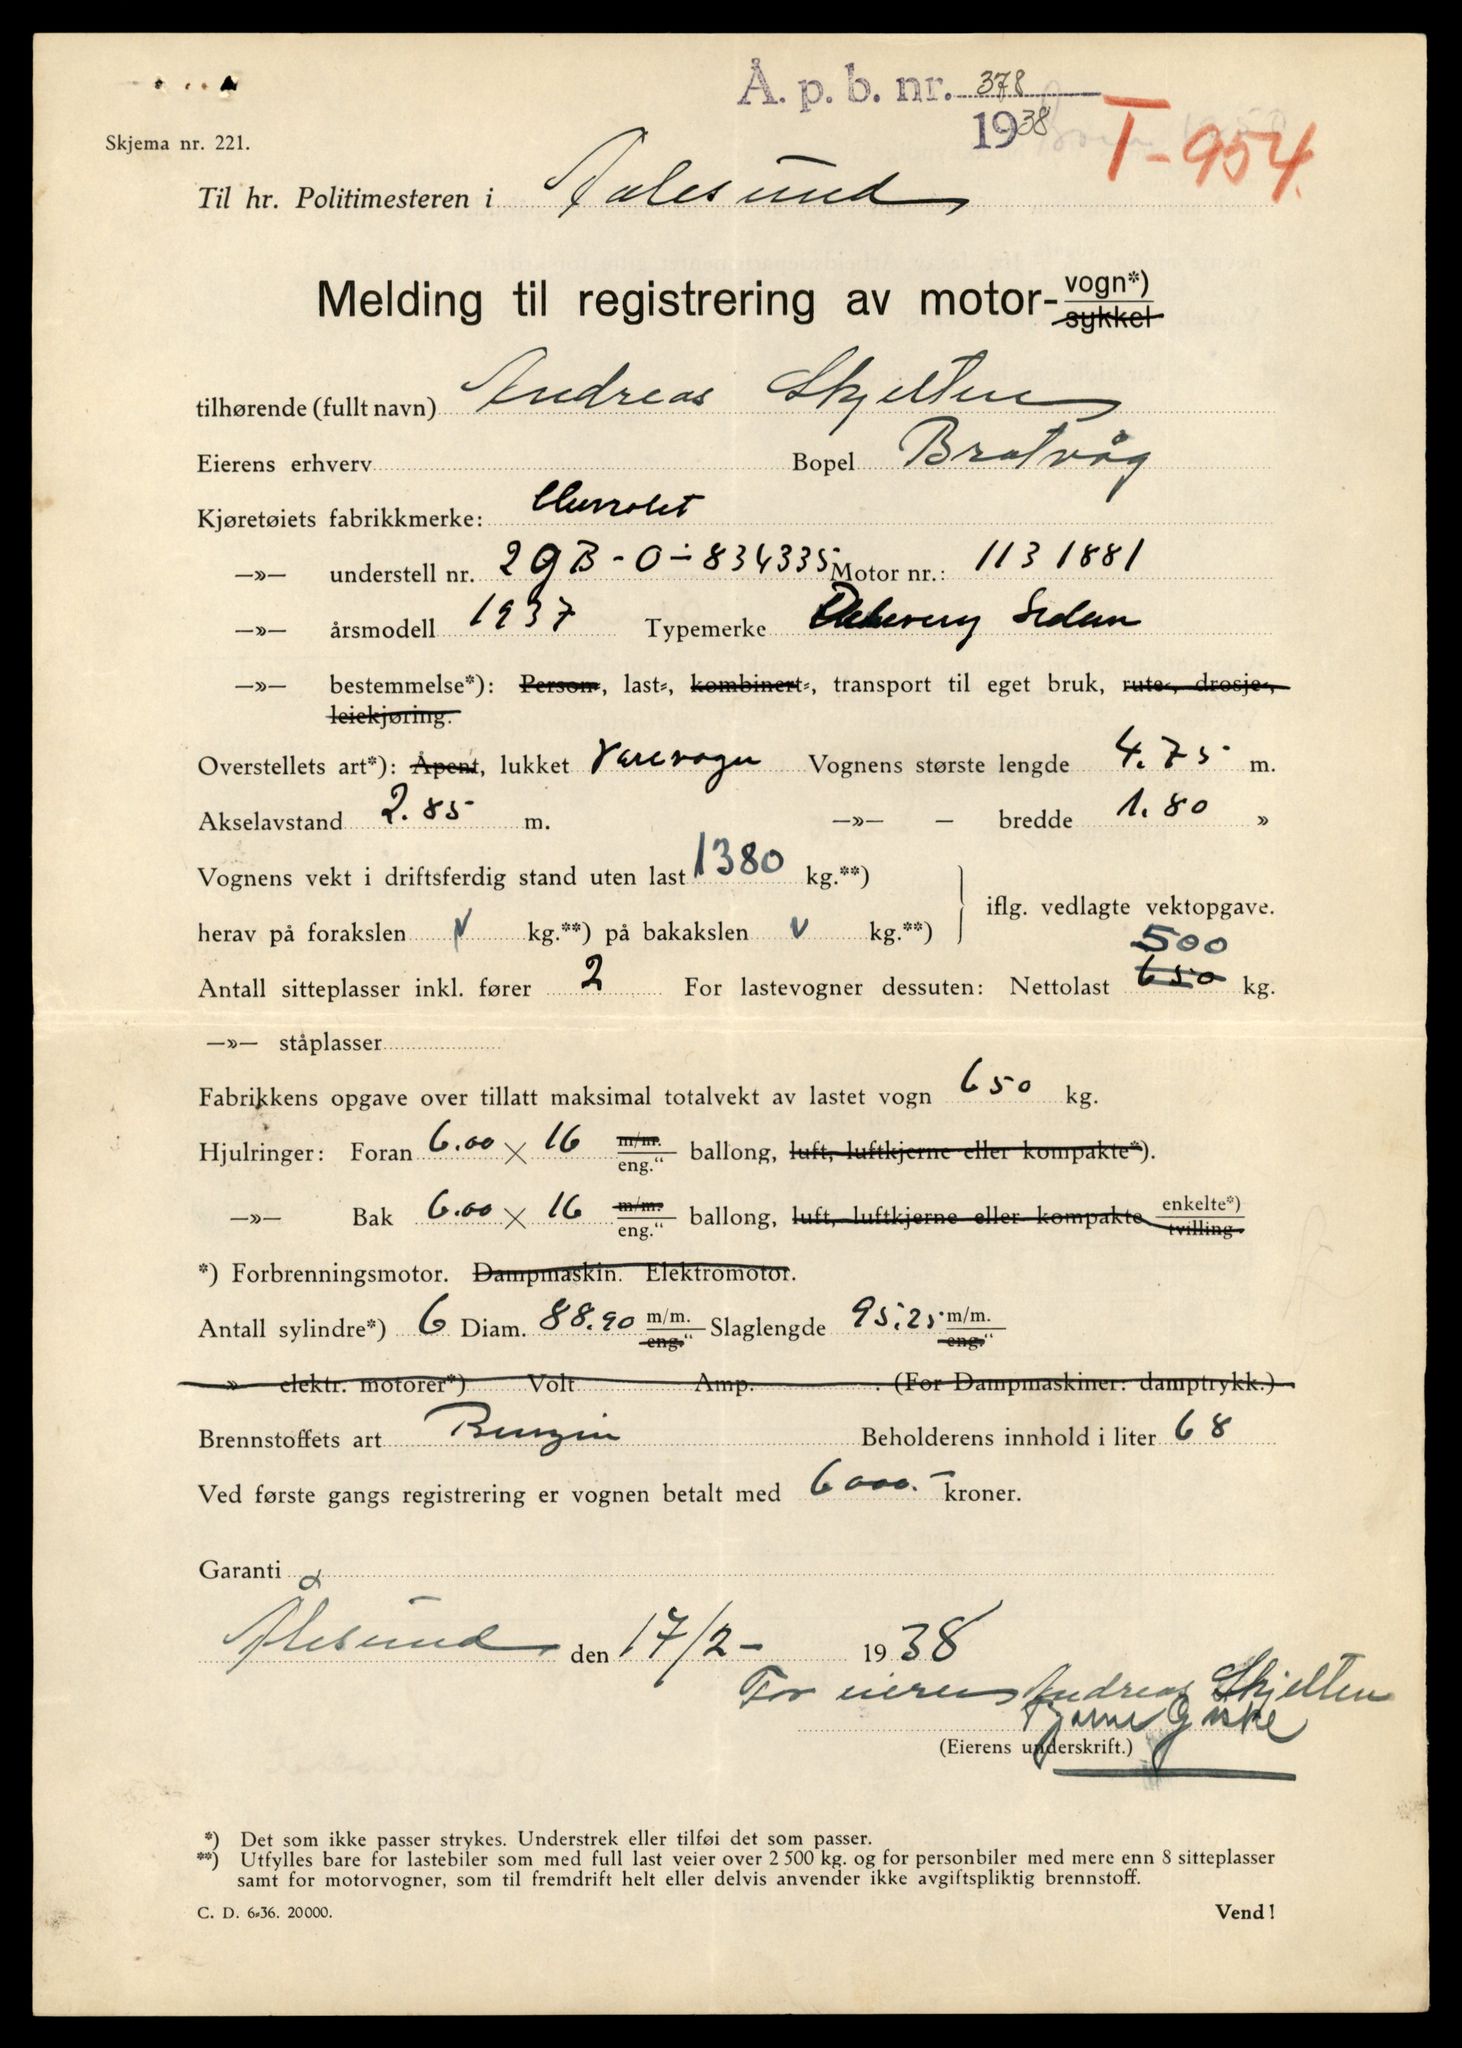 Å. p. b. nr. 378
1938
T-954.
Skjema nr. 221.
Til hr. Politimesteren i Aalesund
Melding til registrering av motor-vogn*)
sykkel
tilhørende (fullt navn) Andreas Skjelten
Eierens erhverv Bopel Bratvåg
Kjøretøiets fabrikkmerke: Chevrolet
—»— understell nr. 2 GB - 0 - 834335 Motor nr.: 1131881
—»— årsmodell 1937 Typemerke Delivery Sedan
—»— bestemmelse*): Person-, last-, kombinert-, transport til eget bruk, rute-, drosje-,
leiekjøring.
Overstellets art*): Åpent, lukket Varevogn Vognens største lengde 4.75 m.
Akselavstand 2.85 m. —»— — bredde 1.80 »
Vognens vekt i driftsferdig stand uten last 1380 kg.**)
iflg. vedlagte vektopgave.
herav på forakslen v kg.**) på bakakslen v kg.**)
500
Antall sitteplasser inkl. fører 2 For lastevogner dessuten: Nettolast 650 kg.
—»— ståplasser
Fabrikkens opgave over tillatt maksimal totalvekt av lastet vogn 650 kg.
Hjulringer: Foran 6.00 × 16 m/m. eng.“ ballong, luft, luftkjerne eller kompakte*).
—»— Bak 6.00 × 16 m/m. eng.“ ballong, luft, luftkjerne eller kompakte enkelte*) tvilling.
*) Forbrenningsmotor. Dampmaskin. Elektromotor.
Antall sylindre*) 6 Diam. 88.90 m/m. eng.“ Slaglengde 95.25 m/m. eng.“
» elektr. motorer*) Volt Amp. . (For Dampmaskiner: damptrykk.)
Brennstoffets art Benzin Beholderens innhold i liter 68
Ved første gangs registrering er vognen betalt med 6000.- kroner.
Garanti
Ålesund den 17/2- 1938
For eieren Andreas Skjelten
Bjarne Giske
(Eierens underskrift.)
*) Det som ikke passer strykes. Understrek eller tilføi det som passer.
**) Utfylles bare for lastebiler som med full last veier over 2 500 kg. og for personbiler med mere enn 8 sitteplasser
samt for motorvogner, som til fremdrift helt eller delvis anvender ikke avgiftspliktig brennstoff.
C. D. 6-36. 20000.
Vend!